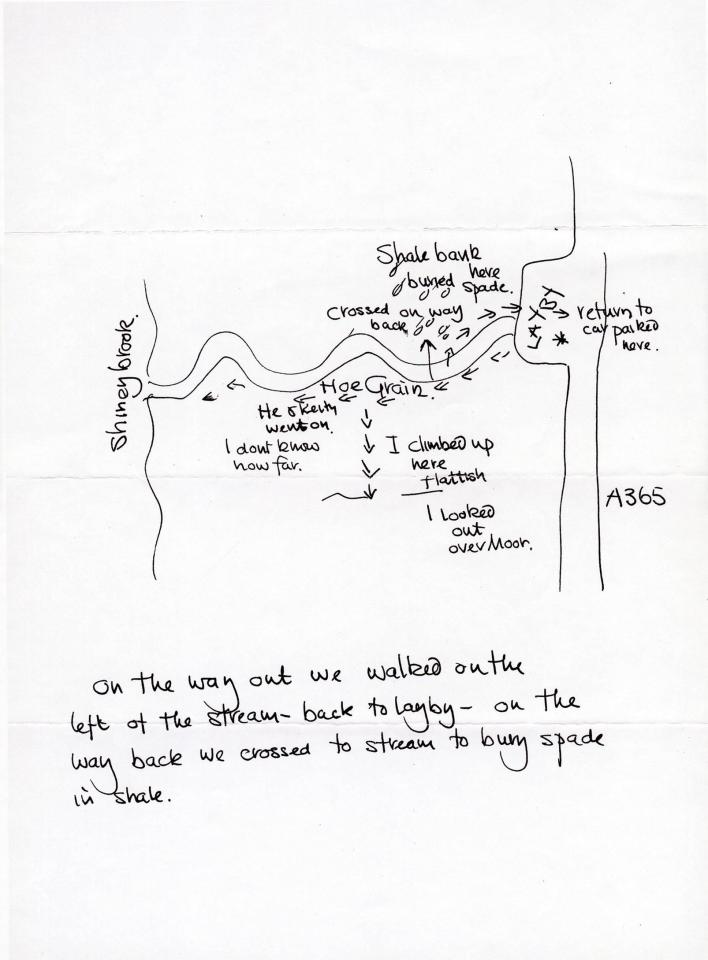 Shale bank
buried here
spade.
Crossed on way
back
LAY BY
return to
car parked
here.
Shiney brook.
Hoe Grain.
He & Keith
went on.
I dont know
how far.
I climbed up
here
flattish
I looked
out
over Moor.
A365
On the way out we walked on the
left of the stream - back to layby - on the
way back we crossed to stream to bury spade
in shale.